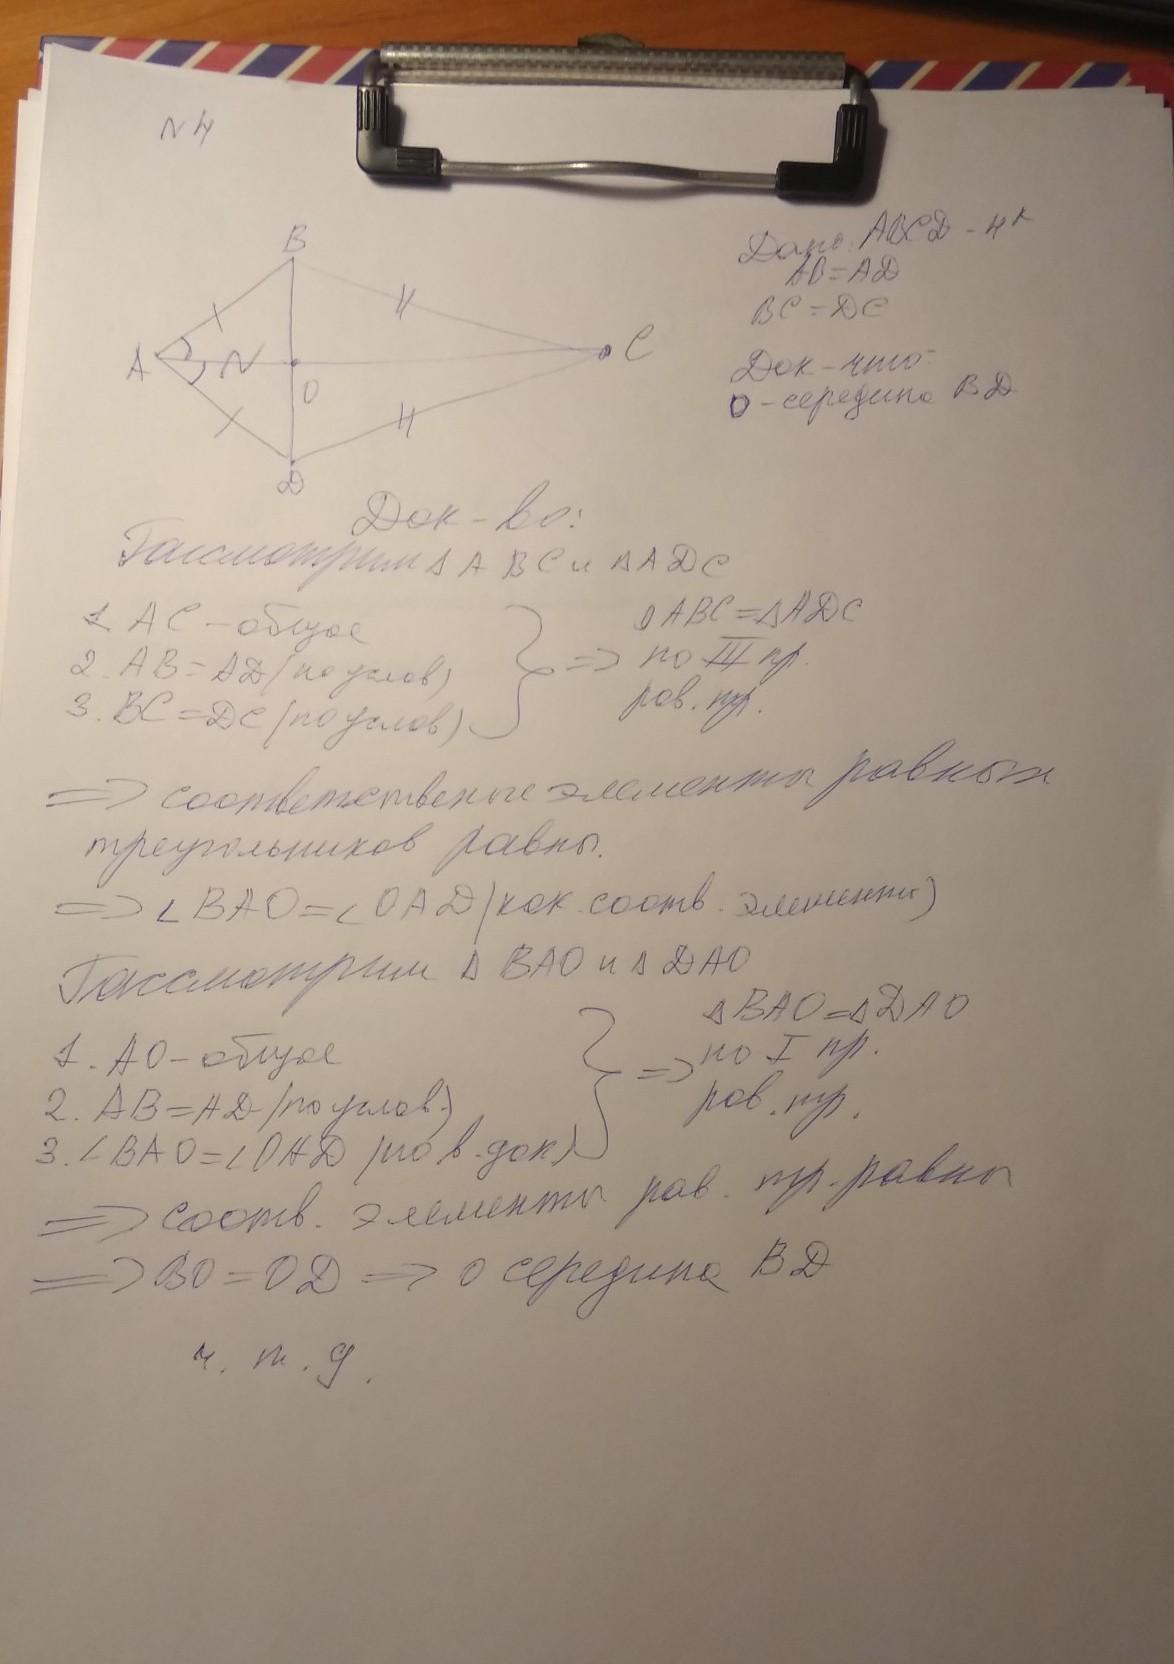 N 4
B
A
C
O
D
Дано: ABCD - 4к
AB = AD
BC = DC
Док-что:
O - середина BD
Док-во:
Рассмотрим Δ ABC и Δ ADC
1. AC - общая
2. AB = AD (по услов)
3. BC = DC (по услов)
=> Δ ABC = Δ ADC
по III пр.
рав. тр.
=> соответственые элементы равных
треугольников равны.
=> ∠ BAO = ∠ OAD (как соотв. элементы)
Рассмотрим Δ BAO и Δ DAO
1. AO - общая
2. AB = AD (по услов.)
3. ∠ BAO = ∠ OAD (по в. док)
=> Δ BAO = Δ DAO
по I пр.
рав. тр.
=> соотв. элементы рав. тр. равны
=> BO = OD => O середина BD
ч. т. д.